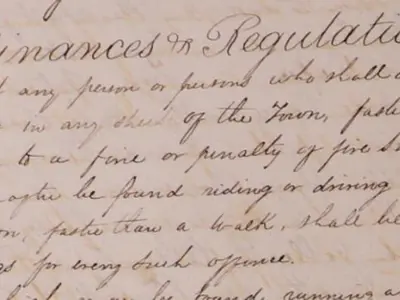 inances & Regulati
t any person or persons who shall
in any of the Town, faste
to a fine or penalty of five
after be found riding or driving
on, faster than a walk, shall be
es for every such offence.
be found, running a